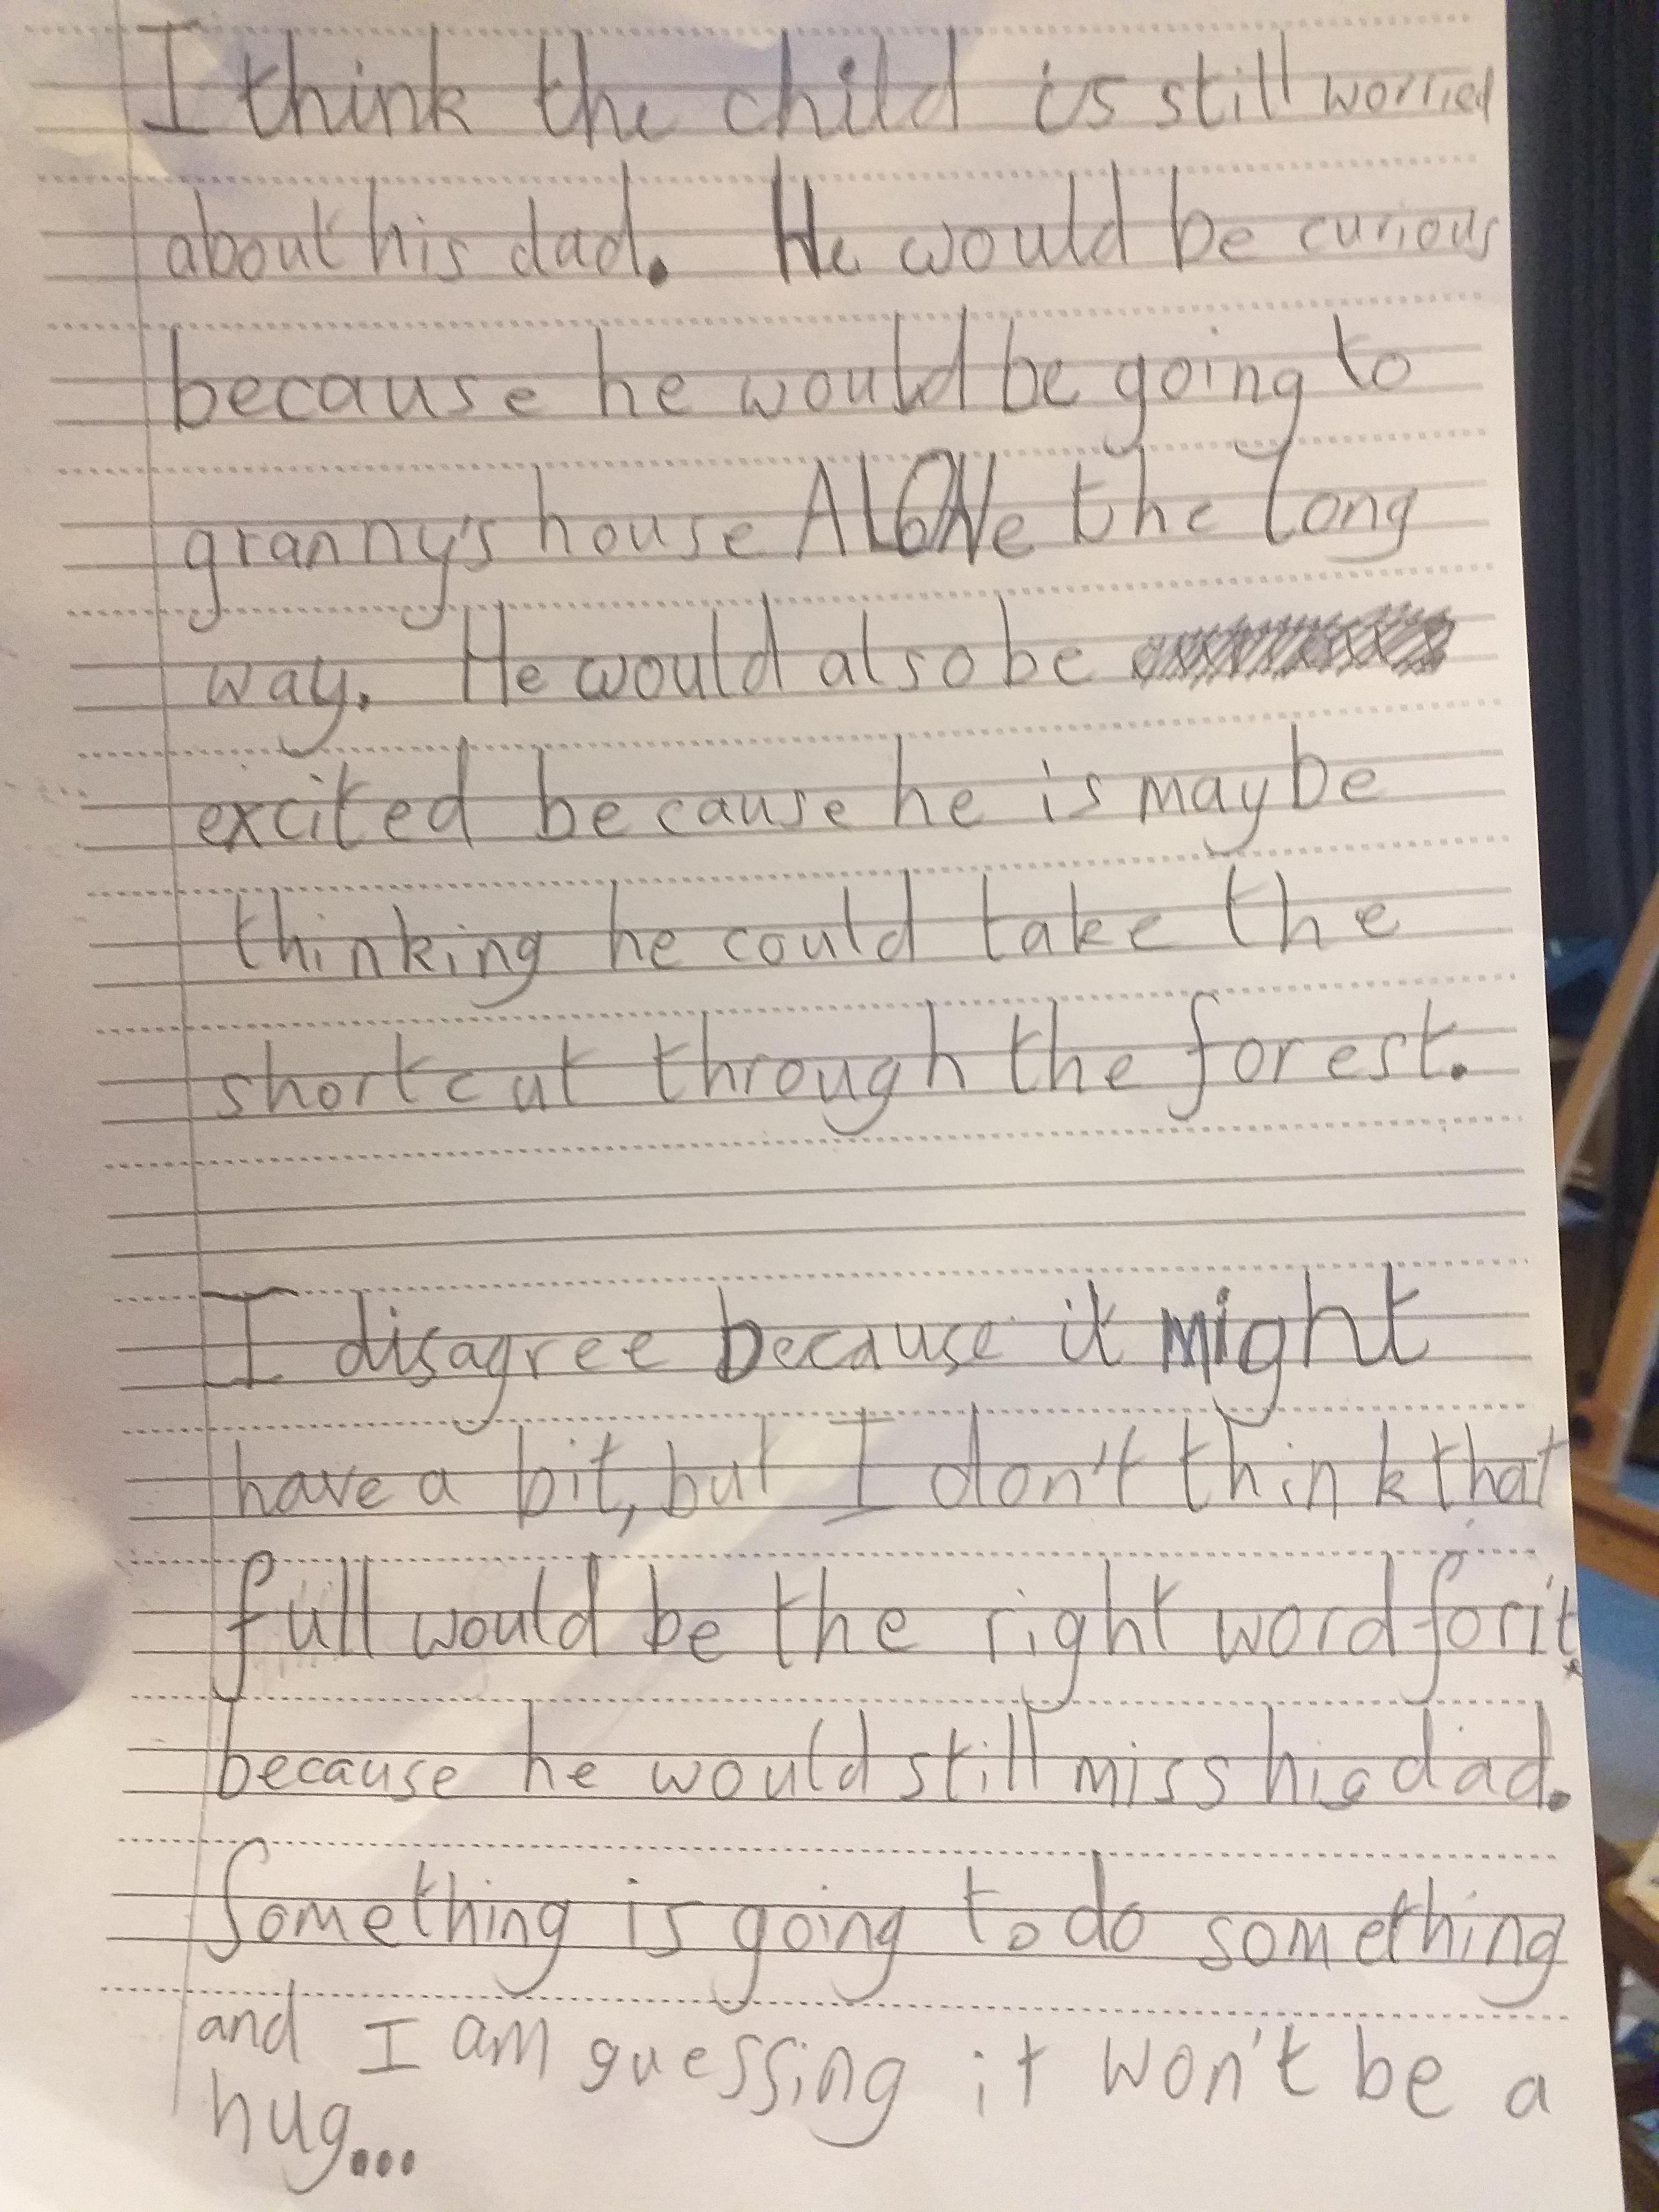 I think the child is still worried
about his dad. He would be curious
because he would be going to
granny's house ALONe the long
way. He would also be
excited because he is maybe
thinking he could take the
shortcut through the forest.
I disagree because it might
have a bit, but I don't think that
full would be the right word for it.
because he would still miss his dad.
Something is going to do something
and I am guessing it won't be a
hug...